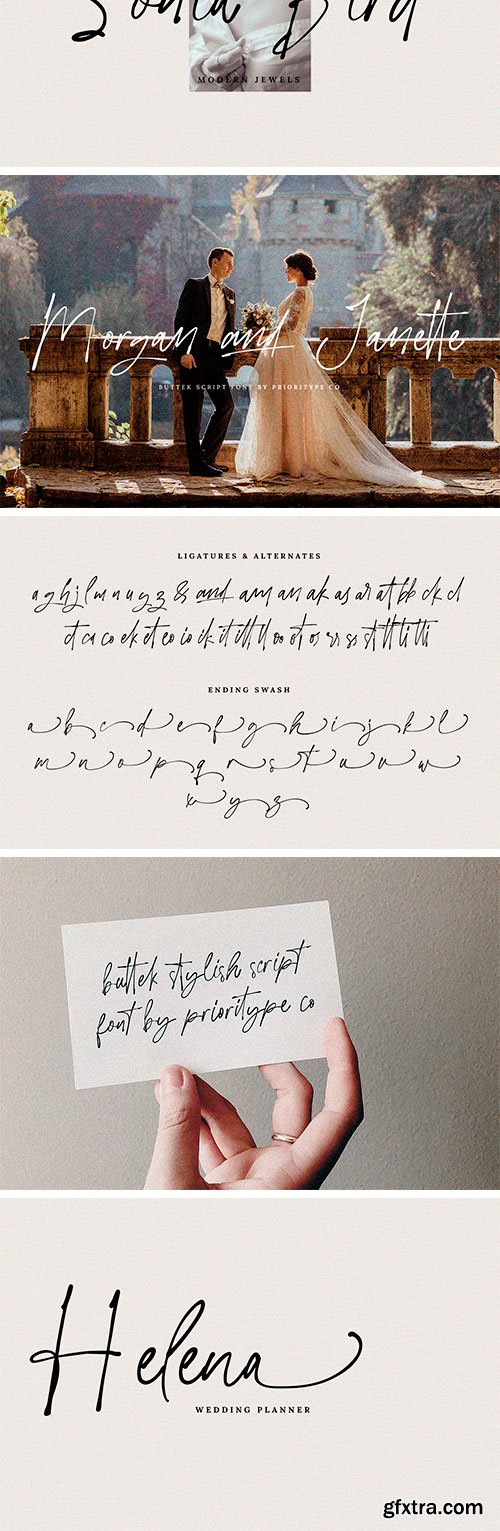 MODERN JEWELS
Morgan and Janette
BUTTEK SCRIPT FONT BY PRIORITYPE CO
LIGATURES & ALTERNATES
a g h j l m n u y z & and am an ak as ar at bb ck cl
ct ca co ek et eo io ik it ill ll oo ot os rr ss st tt ti tti
ENDING SWASH
a b c d e f g h i j k l
m n o p q r s t u v w
x y z
buttek stylish script
font by prioritype co
Helena
WEDDING PLANNER
gfxtra.com